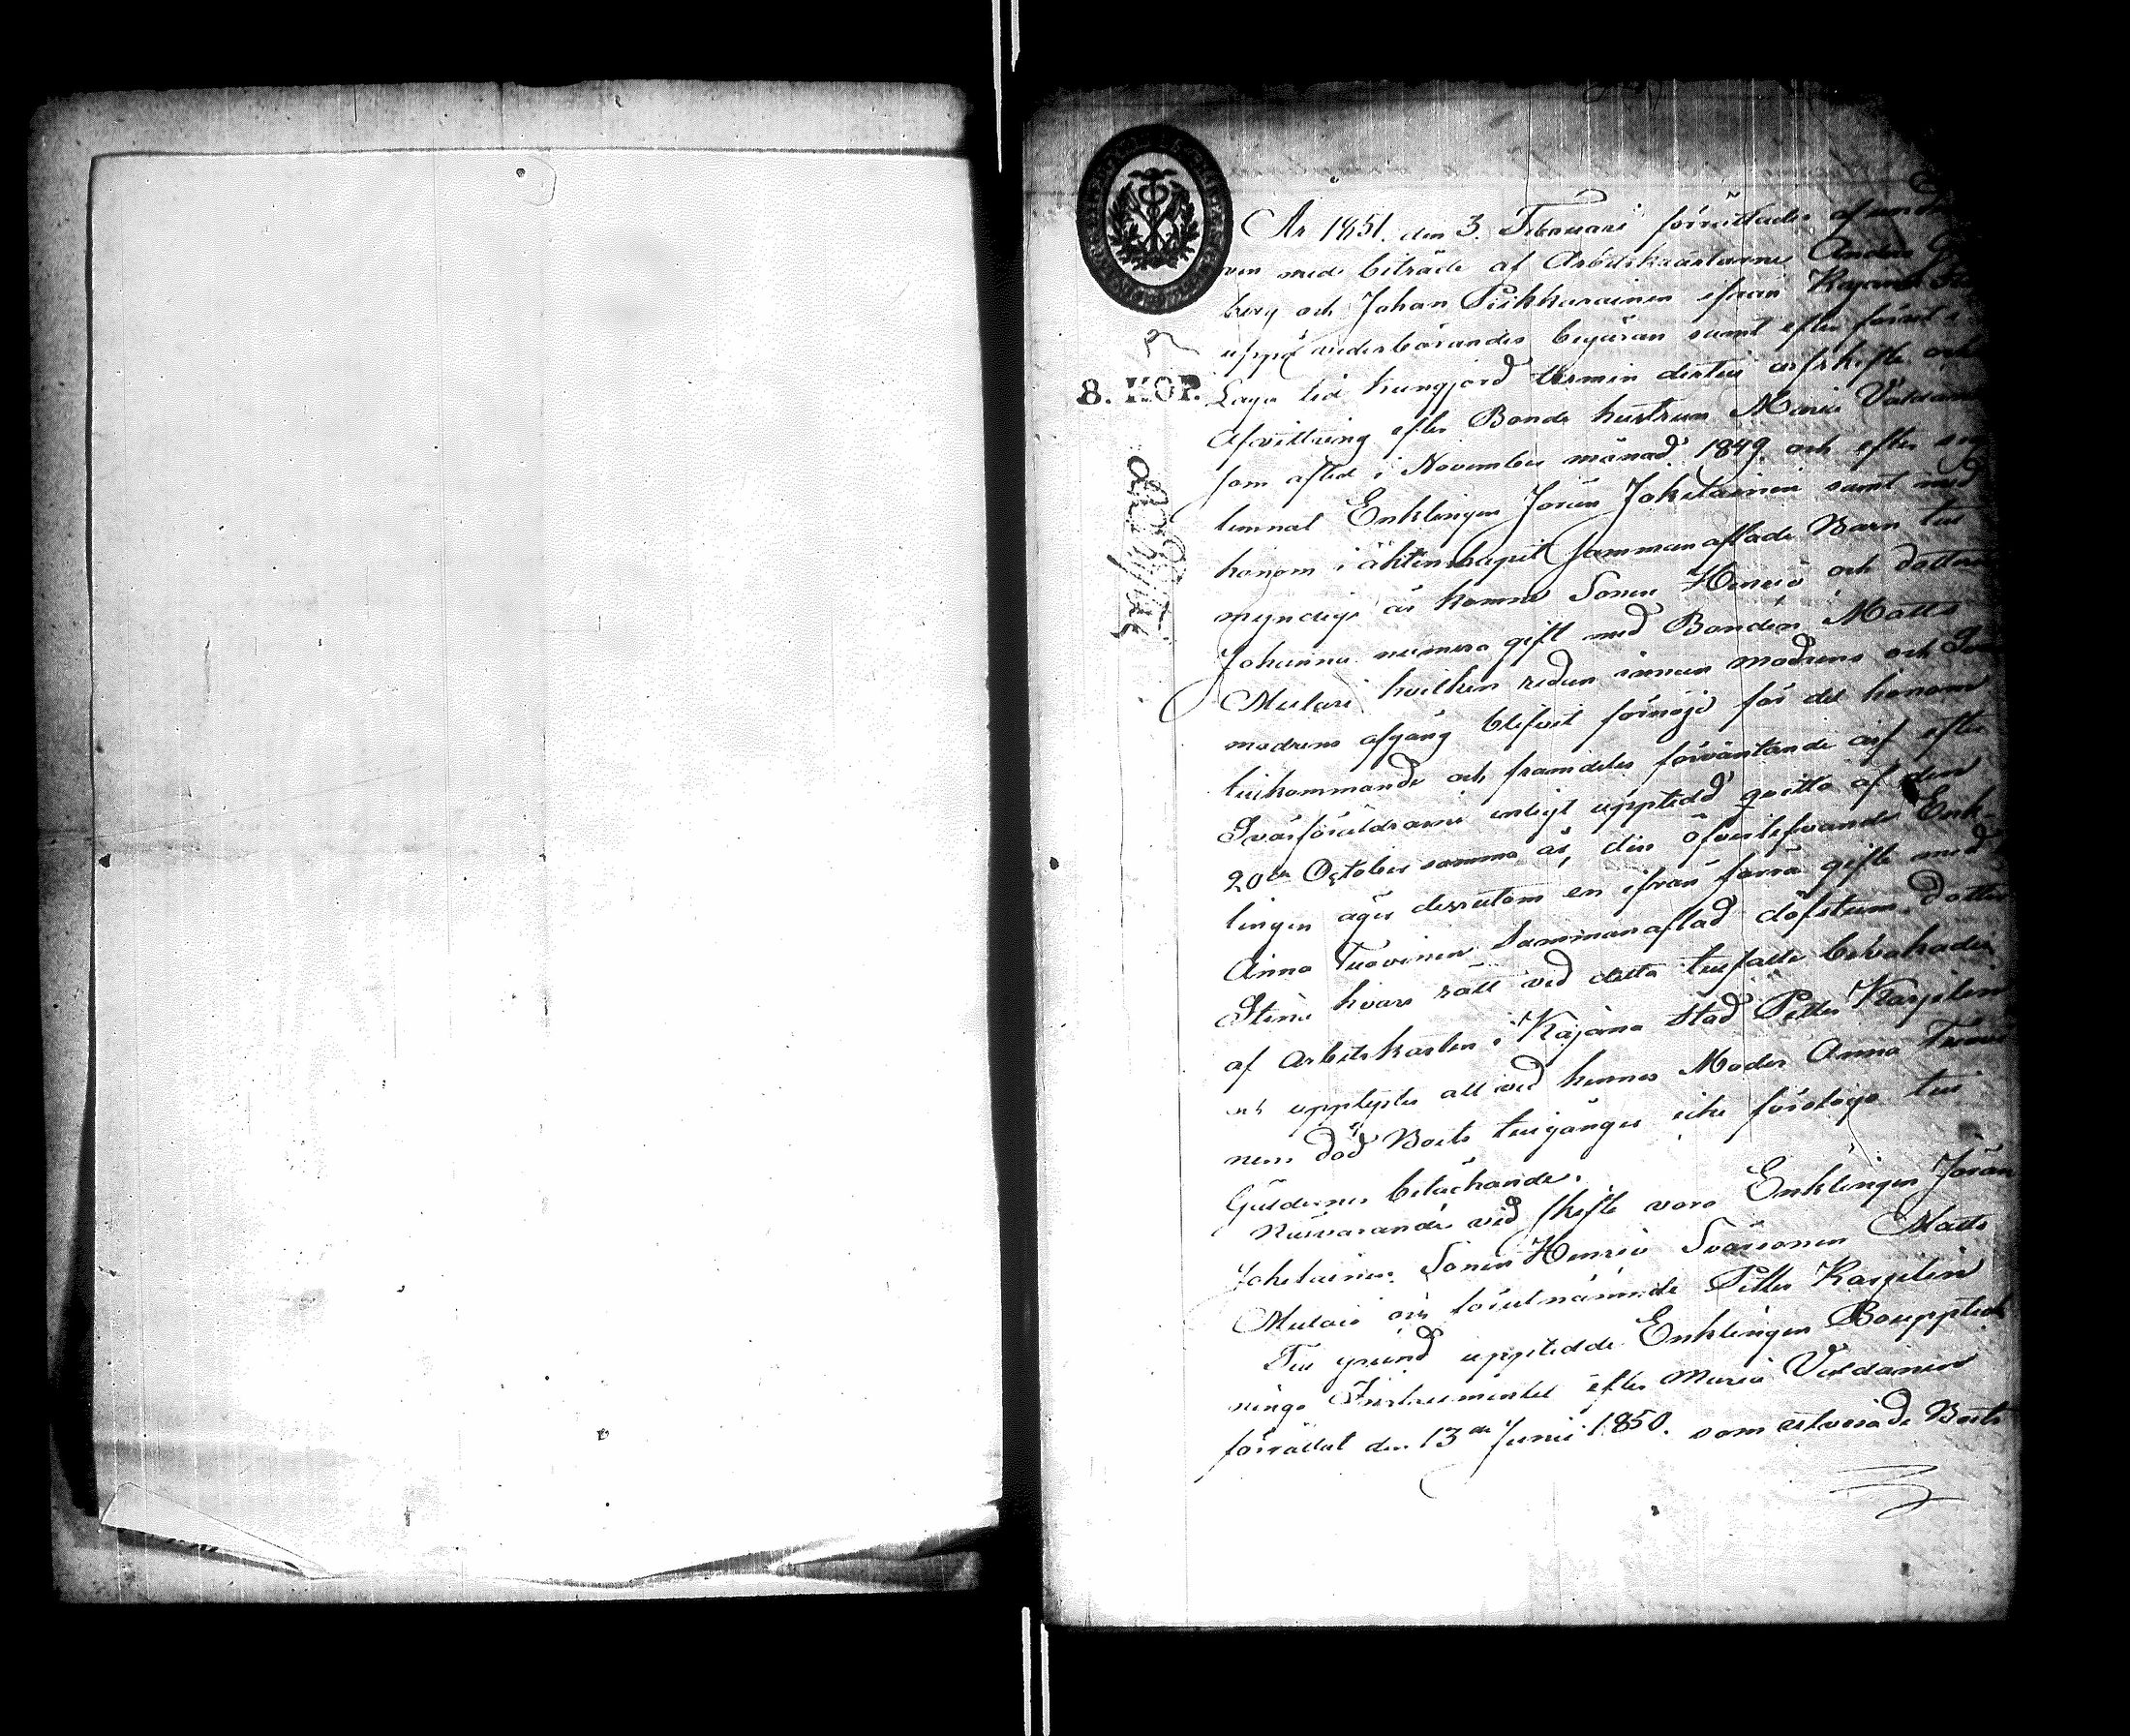 År 1851. den 3. Februari förrättades af
med biträde af Arbetskarlarne Anders
berg och Johan Piikkarainen ifrån Kajana
uppå vederbörandes begäran samt efter förut i
8. KOP.
Laga tid kungjord termin detta arfskifte och
Afvittring efter Bonde hustrun Maria
som afled i November månad 1849. och efter
lemnat Enklingen Jöran Jokelainen samt med
honom i äktenskapet sammanaflade Barn till
myndige år komne Sonen Henric och dottren
Johanna numera gift med Bonden Matts
Mulari hvilken redan innan modrens och Svär
modrens afgång blifvit förnöjd för det honom
tillkommande och framdeles förväntande arf efter
Svärföräldrarne enligt uppteedd qvitto af den
20de October samma år, den öfverlefvande Enk-
lingen äger dessutom en ifrån förra gifte med
Anna Tuovinen Sammanaflad döfstum dotter
Stina hvars rätt vid detta tillfälle bevakades
af Arbetskarlen i Kajana Stad Petter Karjelin
och upplystes att vid hennes Moder Anna Tuovi
nens död Boets tillgångar icke förslogo till
Gäldernes betäckande.
Närvarande vid skifte voro Enklingen Jöran
Jokelainen Sonen Henric Svärsonen Matts
Mulari och förutnämnde Petter Karjelin
Till grund uppteedde Enklingen Bouppteck
nings Instrumentet efter Maria
förrättat den 13de Junii 1850. som utvisade Boets